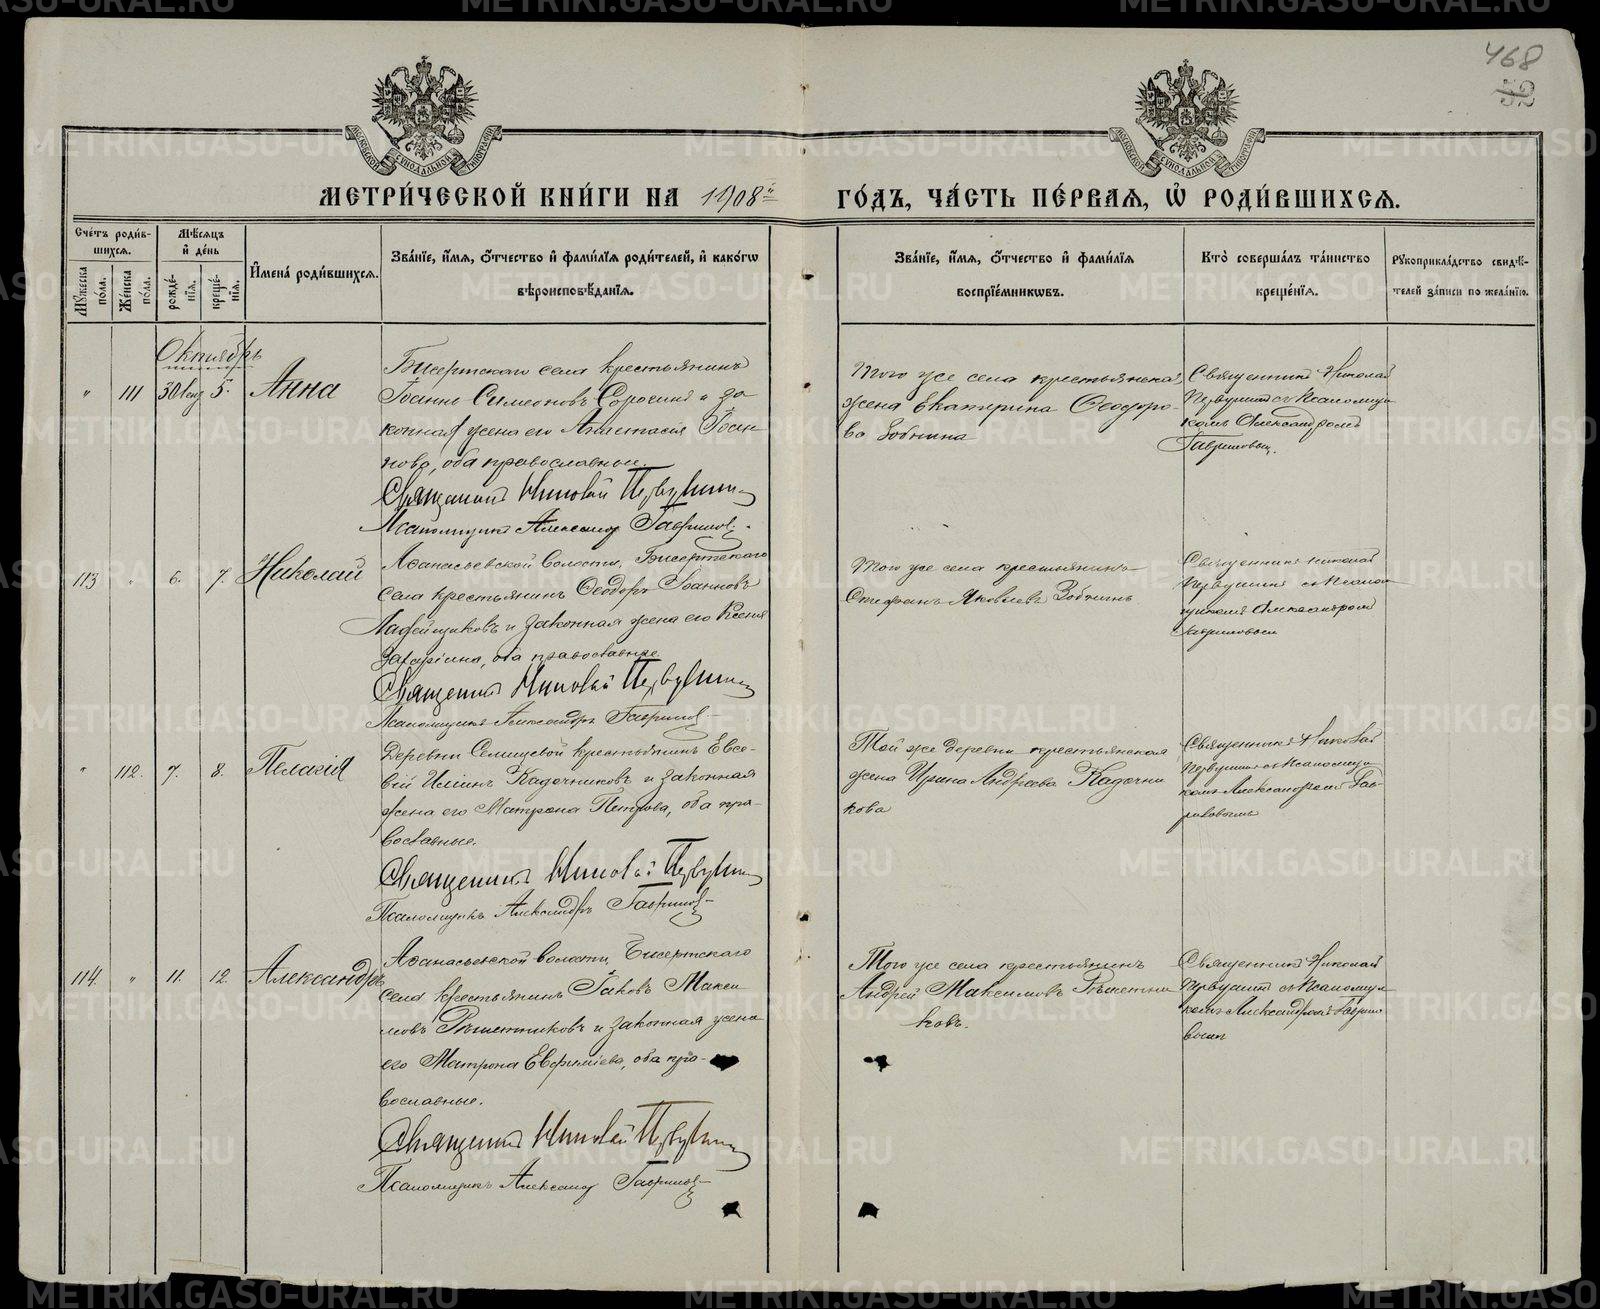 468
МЕТРИ́ЧЕСКОЙ КНИ́ГИ НА 1908й ГО́ДЪ, ЧА́СТЬ ПЕ́РВАЯ, Ѡ҆ РОДИ́ВШИХСЯ.
Сче́тъ роди́в-
шихся.
Мꙋ́жеска по́ла.
Же́нска по́ла.
Мѣ́сяцъ и҆ де́нь
рожде́-
нїя.
креще́-
нїя.
И҆мена̀ роди́вшихся.
Зва́нїе, и҆́мя, ѻ҆́тчество и҆ фами́лїя роди́телей, и҆ како́гѡ
вѣроисповѣ́данїя.
Зва́нїе, и҆́мя, ѻ҆́тчество и҆ фами́лїя
воспрїе́мникѡвъ.
Кто̀ соверша́лъ та́инство
креще́нїя.
Рꙋкоприкла́дство свидѣ́-
телей за́писи по жела́нїю.
Октябрь
" 111 30 5. Анна
Бисертскаго села крестьянинъ
Іоаннъ Симеоновъ Сорокинъ и за-
конная жена его Анастасія Іоан-
нова, оба православные.
Священникъ Николай Первушинъ
Псаломщикъ Александръ Гавриловъ.
Того же села крестьянская
жена Екатерина Ѳеодоро-
ва Зобнина
Священникъ Николай
Первушинъ съ Псаломщи
комъ Александромъ
Гавриловым.
113 " 6. 7. Николай
Аѳанасьевской волости, Бисертскаго
села крестьянинъ Ѳеодоръ Іоанновъ
Лафейщиковъ и законная жена его Ксенія
Захаріина, оба православные.
Священникъ Николай Первушинъ
Псаломщикъ Александръ Гавриловъ
Того же села крестьянинъ
Стефанъ Яковлевъ Зобнинъ
Священникъ Николай
Первушинъ съ Псалом
щикомъ Александромъ
Гавриловым
" 112. 7. 8. Пелагія
Деревни Селищевой крестьянинъ Евсе-
вій Илiинъ Кадочниковъ и законная
жена его Матрона Петрова, оба пра-
вославные.
Священникъ Николай Первушинъ
Псаломщикъ Александръ Гавриловъ
Той же деревни крестьянская
жена Ирина Андреева Кадочни
кова
Священникъ Николай
Первушинъ съ Псаломщи
комъ Александромъ Гав-
риловымъ
114. " 11. 12. Александръ
Аѳанасьевской волости, Бисертскаго
села крестьянинъ Іаковъ Макси
мовъ Рѣшетниковъ и законная жена
его Матрона Евфиміева, оба пра-
вославные.
Священникъ Николай Первушинъ
Псаломщикъ Александръ Гавриловъ
Того же села крестьянинъ
Андрей Максимовъ Рѣшетни
ковъ.
Священникъ Николай
Первушинъ съ Псаломщи
комъ Александромъ Гаврило
вымъ